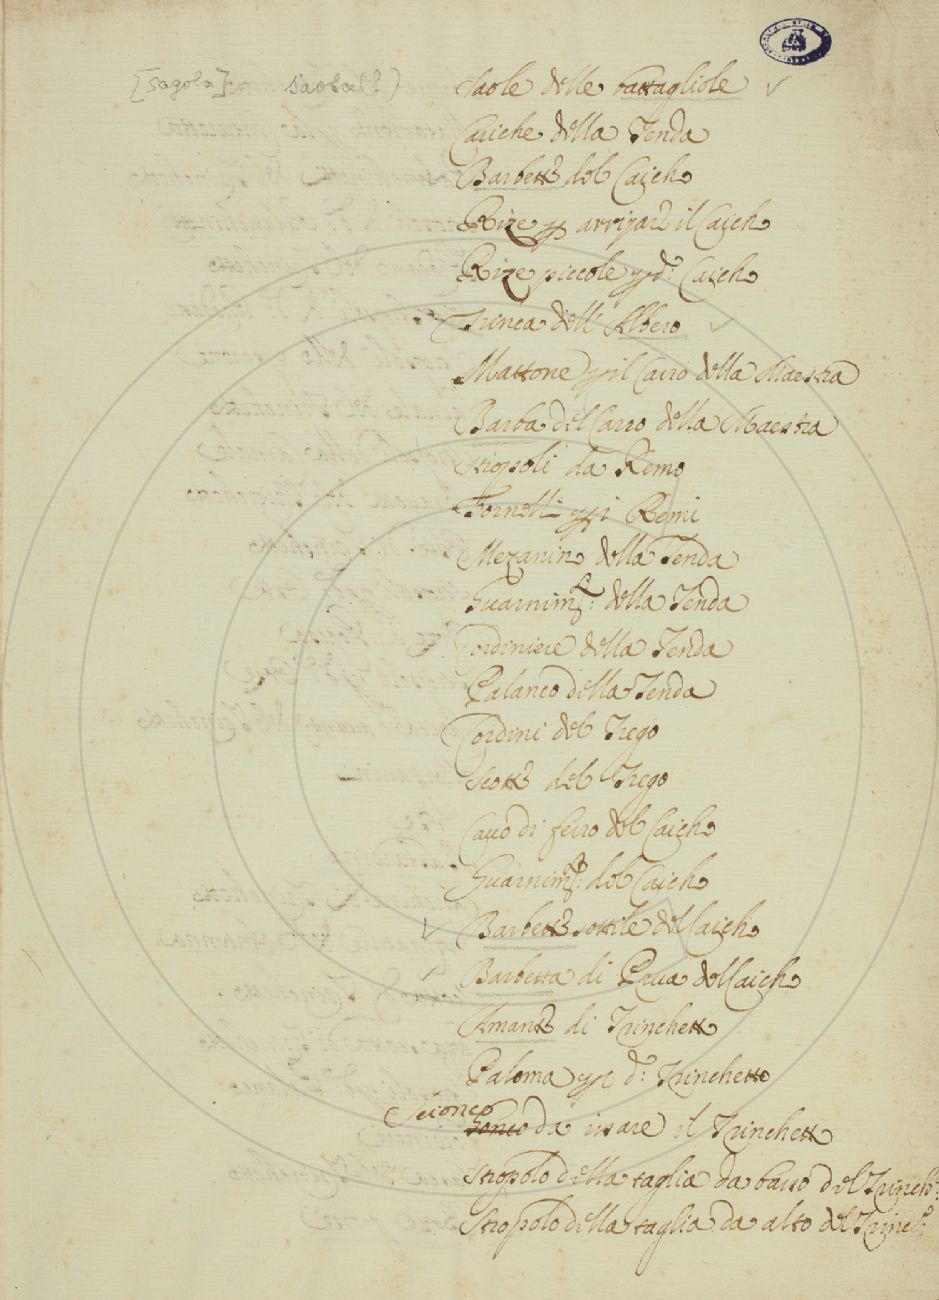 [sagola] saola(?) Saole delle battagliole
Cariche della Tenda
Barbette del Caich
Rize p arrizare il Caich
Rize piccole p d: Caich
Trinca dell' Albero
Mattone p il Carro della Maestra
Barba del Carro della Maestra
Stropoli da Remo
Fornelli p i Remi
Mezanin della Tenda
Guarnim:to della Tenda
Cordiniere della Tenda
Palanco della Tenda
Cordini del Trego
Scotte del Trego
Cavo di ferro del Caich
Guarnim:to del Caich
Barbetta sottile del Caich
Barbetta di Prua del Caich
Amante di Trinchetto
Paloma p il d: Trinchetto
Scionco
Sonco da issare il Trinchetto
Stropolo della taglia da basso del Trinch:
Stropolo della taglia da alto del Trinch: